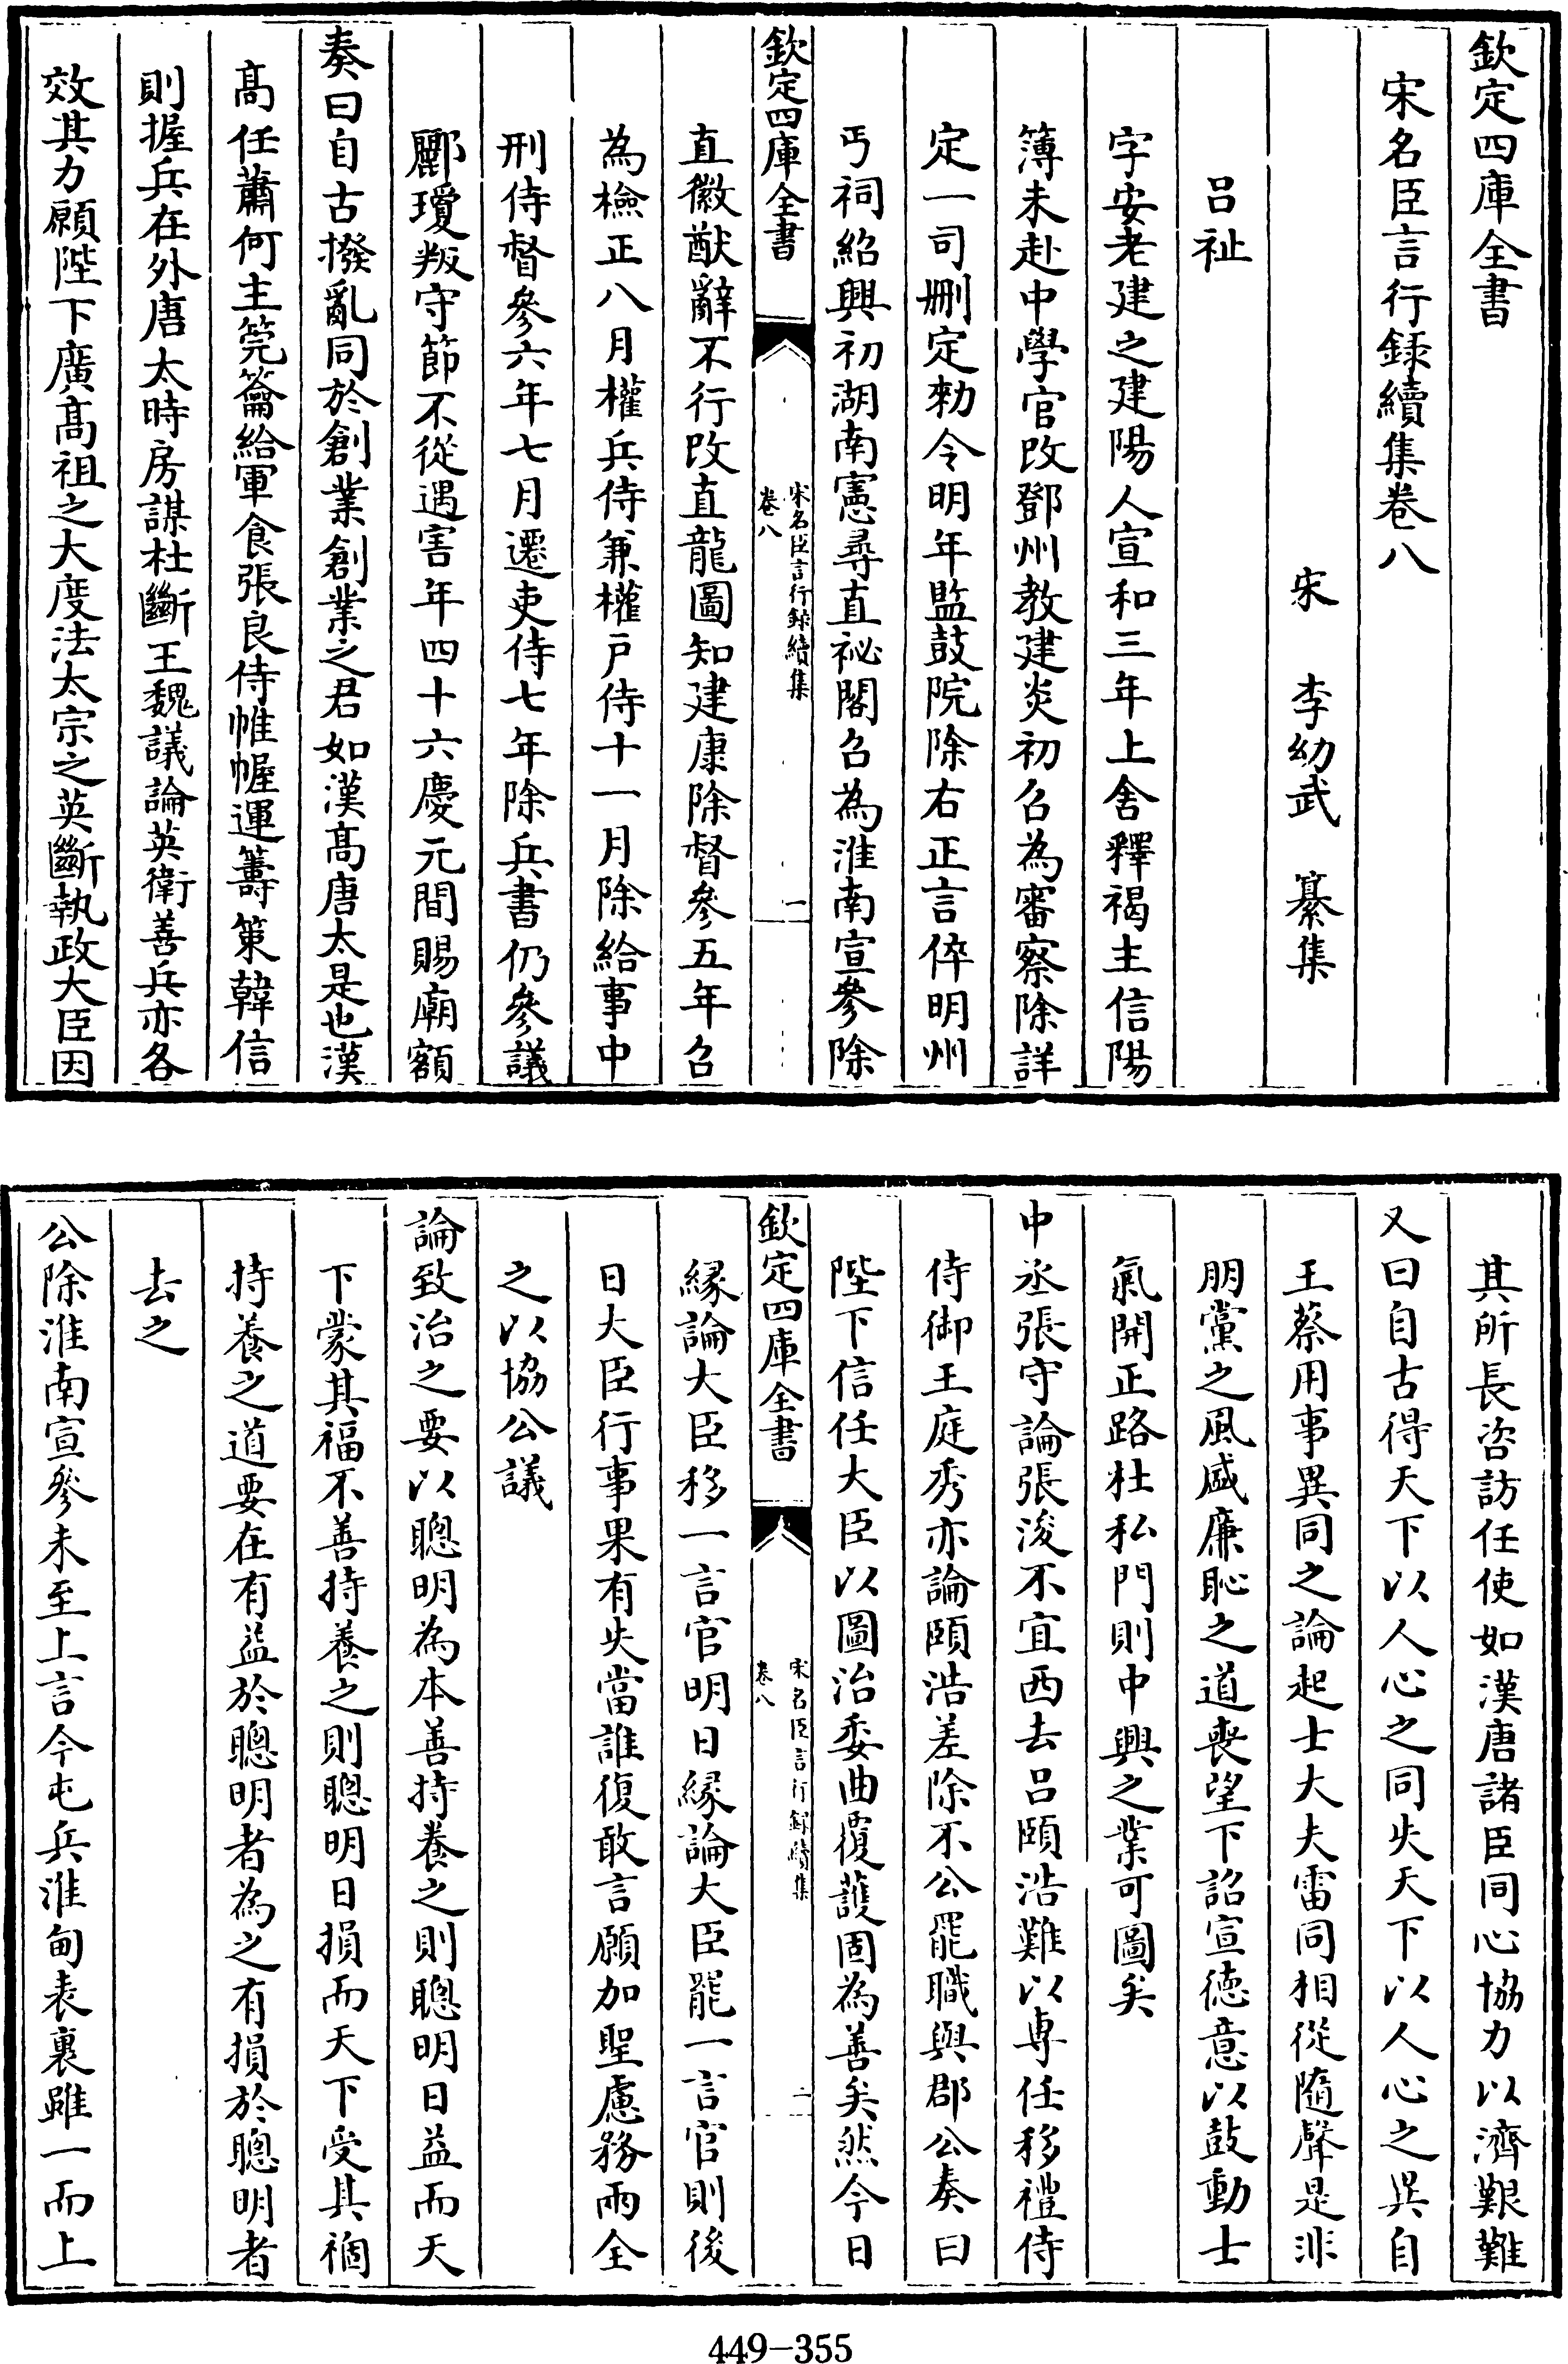 欽定四庫全書
宋名臣言行録續集巻八
宋 李幼武 纂集
吕祉
字安老建之建陽人宣和三年上舎釋褐主信陽
簿未赴中學官改鄧州教建炎初召為審察除詳
定一司刪定勅令明年監鼓院除右正言倅明州
丐祠紹興初湖南憲尋直祕閣召為淮南宣參除
欽定四庫全書
宋名臣言行録續集
巻八
一
直徽猷辭不行改直龍圖知建康除督參五年召
為檢正八月權兵侍兼權戸侍十一月除給事中
刑侍督參六年七月遷吏侍七年除兵書仍參議
酈瓊叛守節不從遇害年四十六慶元間賜廟額
奏曰自古撥亂同於創業創業之君如漢髙唐太是也漢
髙任蕭何主筦籥給軍食張良侍帷幄運籌策韓信
則握兵在外唐太時房謀杜斷王魏議論英衛善兵亦各
效其力願陛下廣髙祖之大度法太宗之英斷執政大臣因
其所長咨訪任使如漢唐諸臣同心協力以濟艱難
又曰自古得天下以人心之同失天下以人心之異自
王蔡用事異同之論起士大夫雷同相從隨聲是非
朋黨之風盛廉恥之道喪望下詔宣徳意以鼓動士
氣開正路杜私門則中興之業可圖矣
中丞張守論張浚不宜西去吕頤浩難以専任移禮侍
侍御王庭秀亦論頤浩差除不公罷職與郡公奏曰
陛下信任大臣以圖治委曲覆護固為善矣然今日
欽定四庫全書
宋名臣言行録續集
巻八
二
縁論大臣移一言官明日縁論大臣罷一言官則後
日大臣行事果有失當誰復敢言願加聖慮務兩全
之以協公議
論致治之要以聰明為本善持養之則聰明日益而天
下蒙其福不善持養之則聰明日損而天下受其禍
持養之道要在有益於聰明者為之有損於聰明者
去之
公除淮南宣參未至上言今屯兵淮甸表裏雖一而上
449-355